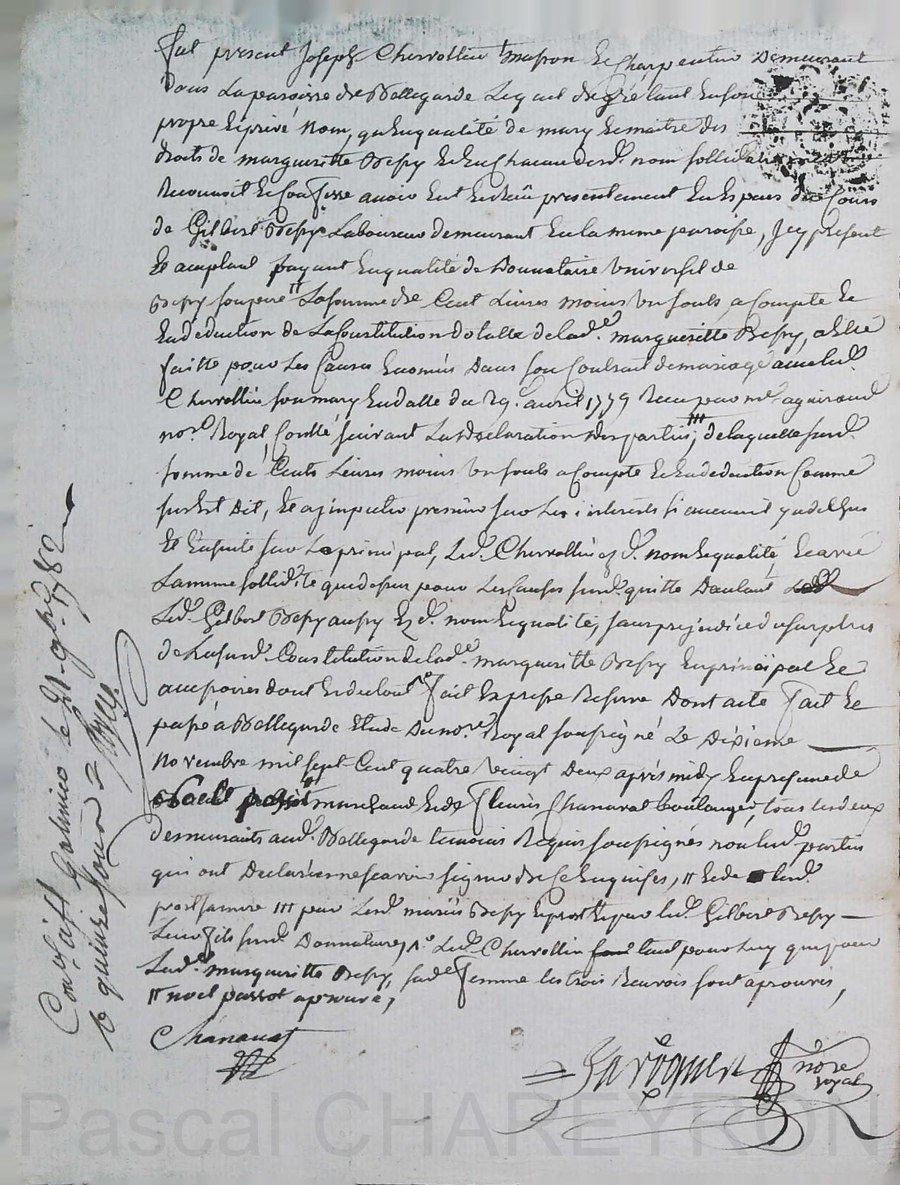 fut present Joseph Chervollin masson et charpentier demeurant
dans La paroisse de Bellegarde Lequel de gré tant en son
propre et privé nom, qu'en qualité de mary et maitre des
droits de margueritte Bessy et en chacun desd. nom sollidairement
Reconnoit et confesse avoir eut et Recû presentement en Especes de cours
de Gilbert Bessy Laboureur demeurant en la meme paroisse, Icy present
et acceptant payant en qualité de Donnataire universel de
Bessy son pere La somme de Cent Livres moins un souls, a compte et
en deduction de La Constitution dotalle de lad.e margueritte Bessy, a Elle
faitte pour Les Causes Enoncés Dans son Contrat de mariage avec led.
Chervollin son mary en datte du 29.e avril 1779 Recu par me aguiraud
nore. Royal, Contlé suivant La declaration des parties, III de laquelle surd.
somme de Cents Livres moins un souls a compte et en deduction Comme
sus est dit, et a imputer premier sur Les interets si aucuns y a de dus
et ensuitte sur Le principal, Led. Chervollin ez d. nom et qualité, et avec
La meme sollidité que dessus pour Les causes surd. quitte D'autant
Led. Gilbert Bessy aussy Ez d. nom et qualité, sans prejudice du surplus
de La surd. Constitution de lad.e margueritte Bessy en principal et
accessoires dont en du tout fait Expresse Reserve Dont acte fait et
passé à Bellegarde Etude du nore. Royal soussigné Le Dixieme
Novembre mil sept Cent quatre vingt deux après midy en presence de
marchand et de fleuris Chanavat boulanger, tous les deux
demeurants aud. Bellegarde temoins Requis soussignés non les d. parties
qui ont Declaré ne scavoir signer de ce Enquises, II et de lad.
III par Lesd. mariés Bessy et par led. Gilbert Bessy
Leur fils surd. Donnataire, Led. Chervollin tant pour Luy que pour
Lad.e margueritte Bessy, sad.e femme les trois Renvois sont aprouvés,
II noel passot aprouvé,
Chanavat
Laroquerie nore royal
Conlé à St Galmier le 21 9bre 1782
R quinze sous
Pascal CHAREYRON